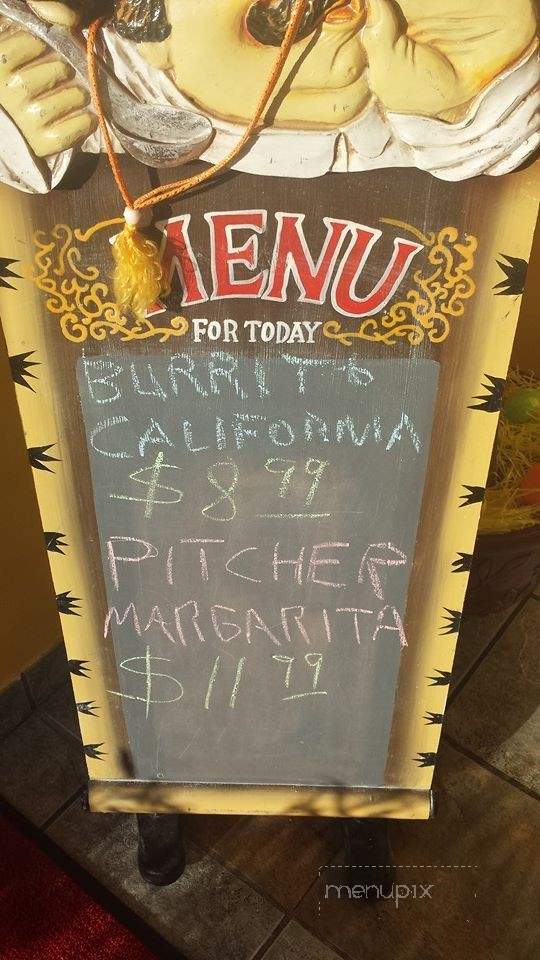 MENU
FOR TODAY
BURRITO
CALIFORNIA
$8.99
PITCHER
MARGARITA
$11.99
menupix